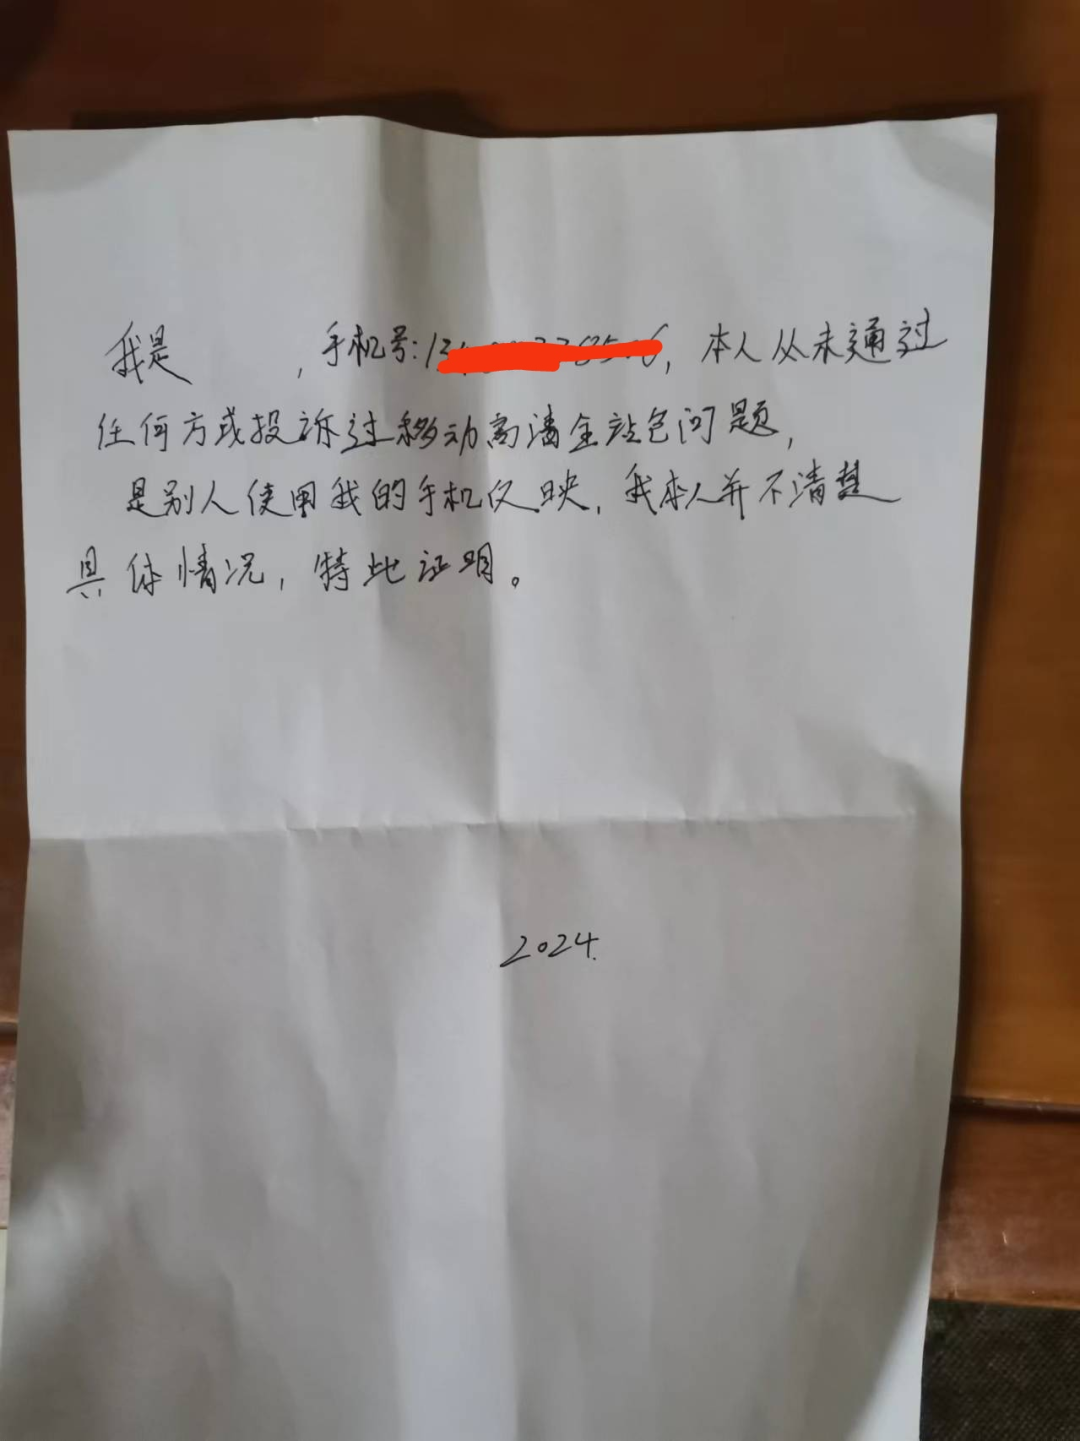 我是 ，手机号:13
，本人从未通过
任何方式投诉过移动高清全站包问题，
是别人使用我的手机反映，我本人并不清楚
具体情况，特此证明。
2024.